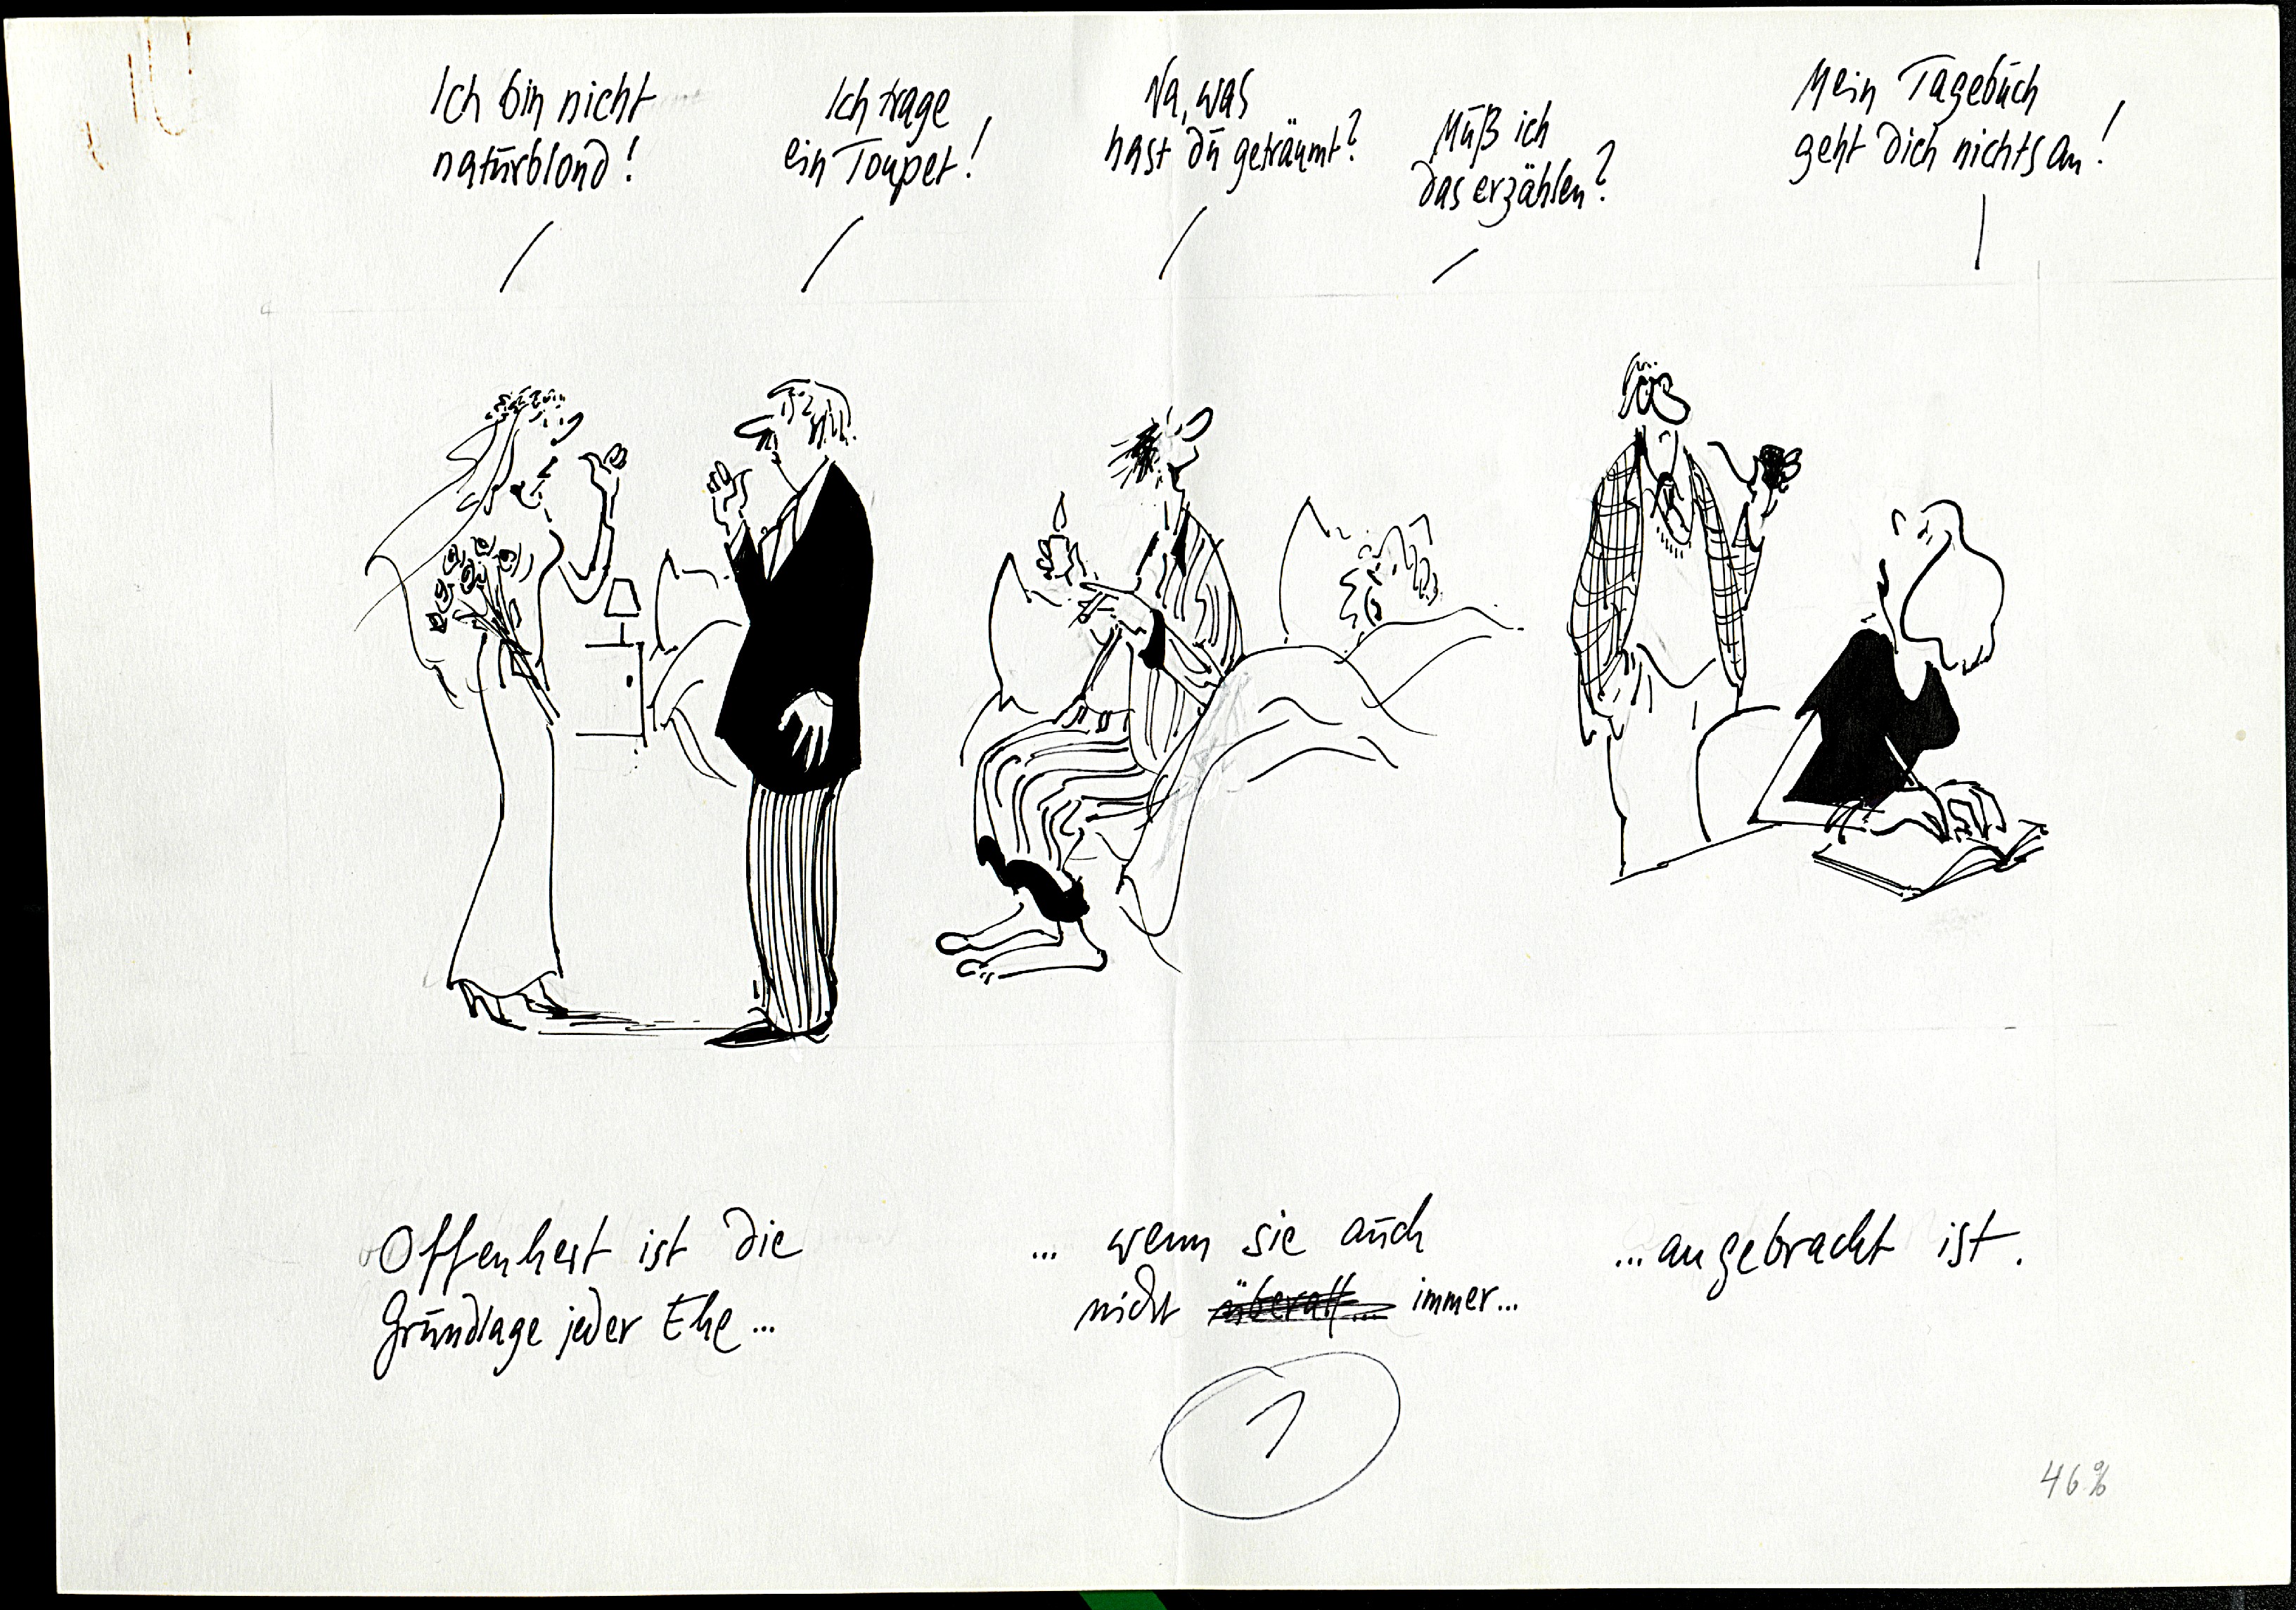 Ich bin nicht
naturblond!
Ich trage
ein Toupet!
Na, was
hast du geträumt?
Muß ich
das erzählen?
Mein Tagebuch
geht dich nichts an!
Offenheit ist die
Grundlage jeder Ehe...
... wenn sie auch
nicht überall... immer...
...angebracht ist.
1
46%